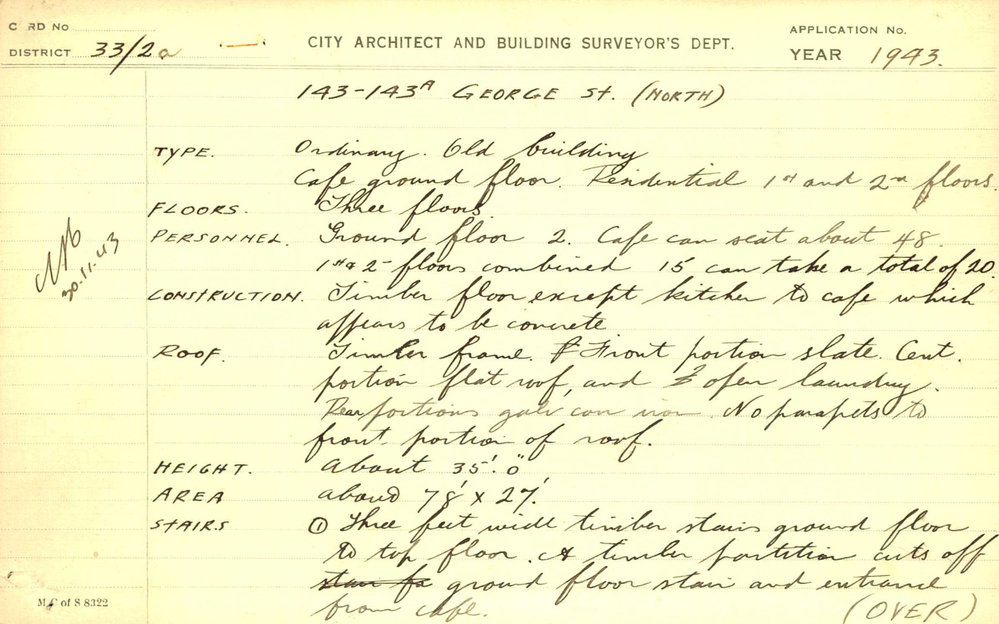 C RD No
DISTRICT 33/2a
CITY ARCHITECT AND BUILDING SURVEYOR'S DEPT.
APPLICATION No.
YEAR 1943.
143-143A GEORGE St. (NORTH)
TYPE. Ordinary. Old building
Cafe ground floor. Residential 1st and 2nd floors.
FLOORS. Three floors.
PERSONNEL. Ground floor 2. Cafe can seat about 48.
1st & 2nd floors combined 15 can take a total of 20.
CONSTRUCTION. Timber floor except kitchen to cafe which
appears to be concrete.
ROOF. Timber frame. Front portion slate. Cent.
portion flat roof, and open laundry.
Rear portions galv con iron. No parapets to
front portion of roof.
HEIGHT. About 35'.0"
AREA about 78' x 27'.
STAIRS ① Three feet wide timber stairs ground floor
to top floor. A timber partition cuts off
stair fo ground floor stair and entrance
from cafe.
(OVER)
30.11.43
M C of S 8322